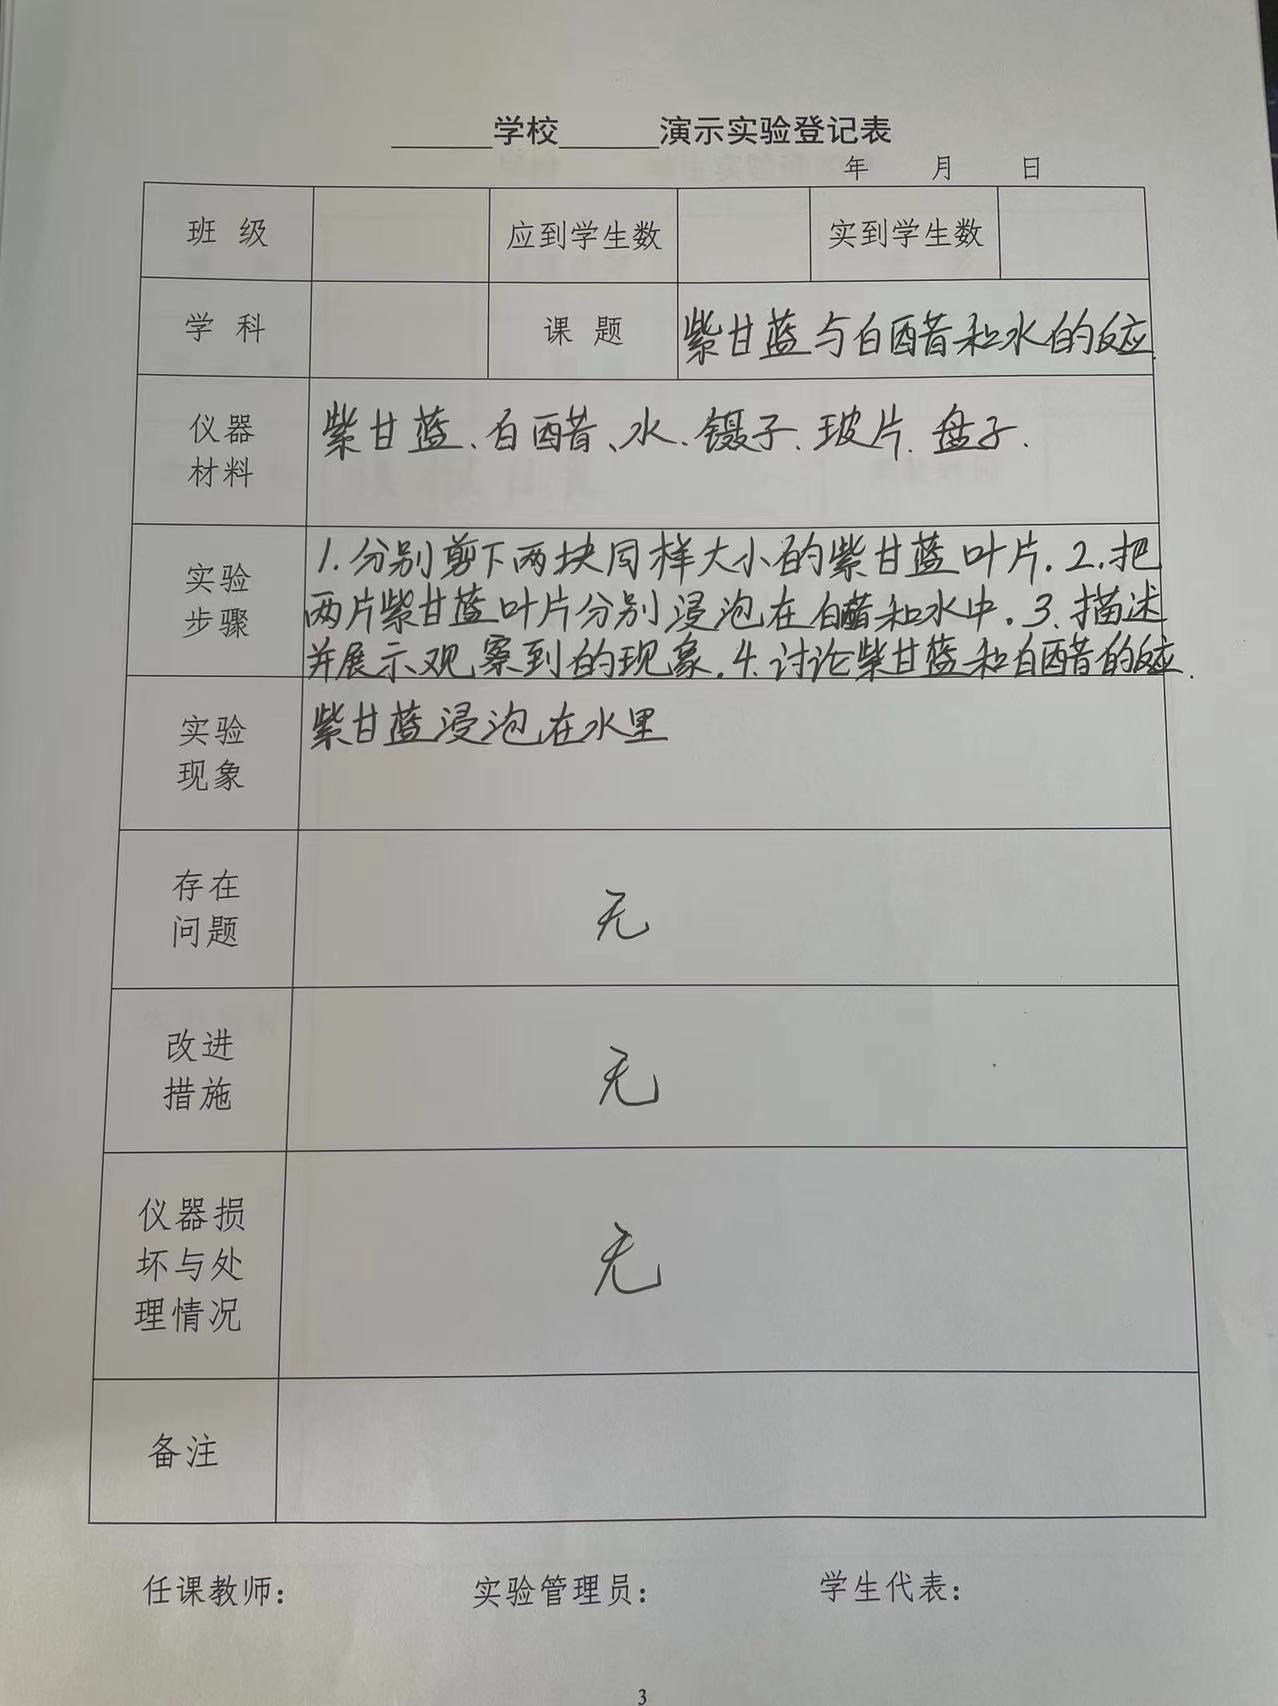 ______学校______演示实验登记表
年 月 日
班 级 应到学生数 实到学生数
学 科 课 题 紫甘蓝与白醋和水的反应.
仪器
材料
紫甘蓝、白醋、水、镊子、玻片、盘子.
实验
步骤
1.分别剪下两块同样大小的紫甘蓝叶片.2.把
两片紫甘蓝叶片分别浸泡在白醋和水中.3.描述
并展示观察到的现象.4.讨论紫甘蓝和白醋的反应.
实验
现象
紫甘蓝浸泡在水里
存在
问题
无
改进
措施
无
仪器损
坏与处
理情况
无
备注
任课教师： 实验管理员： 学生代表：
3